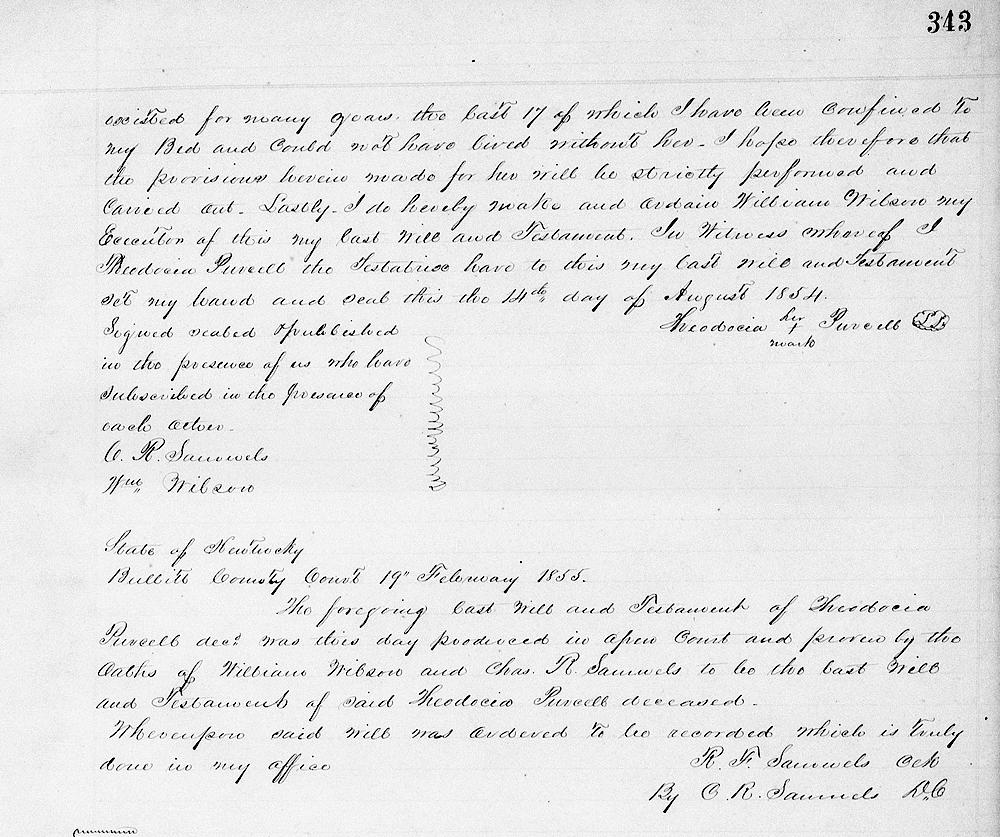 343
existed for many years. the last 17 of which I have been confined to
my Bed and Could not have lived without her - I hope therefore that
the provisions herein made for her will be strictly performed and
Carried out - Lastly - I do hereby make and ordain William Wilson my
Executor of this my last Will and Testament. In Witness whereof I
Theodocia Purcell the Testatrix have to this my last will and Testament
set my hand and seal this the 14th day of August 1854.
Theodocia her + mark Purcell
Signed sealed & published
in the presence of us who have
subscribed in the presence of
each other -
C. R. Samuels
Wm Wilson
State of Kentucky
Bullitt County Court 19" February 1855.
The foregoing last Will and Testament of Theodocia
Purcell decd. was this day produced in open Court and proven by the
Oaths of William Wilson and Chas. R. Samuels to be the last Will
and Testament of said Theodocia Purcell deceased -
Whereupon said will was ordered to be recorded which is truly
done in my office
R. F. Samuels Clk
By C. R. Samuels D.C